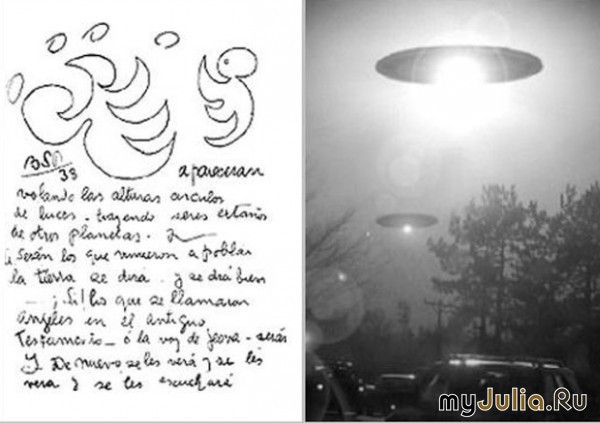 BSP
38
apareceran
volando las alturas circulos
de luces - trayendo seres extraños
de otros planetas.
Serán los que vinieron a poblar
la tierra se dirá. y se dirá bien
¡Si! los que se llamaron
angeles en el Antiguo
Testamento - ó la voz de Jeova - serás
De nuevo se les verá y se les
vera y se les escuchará
myJulia.Ru